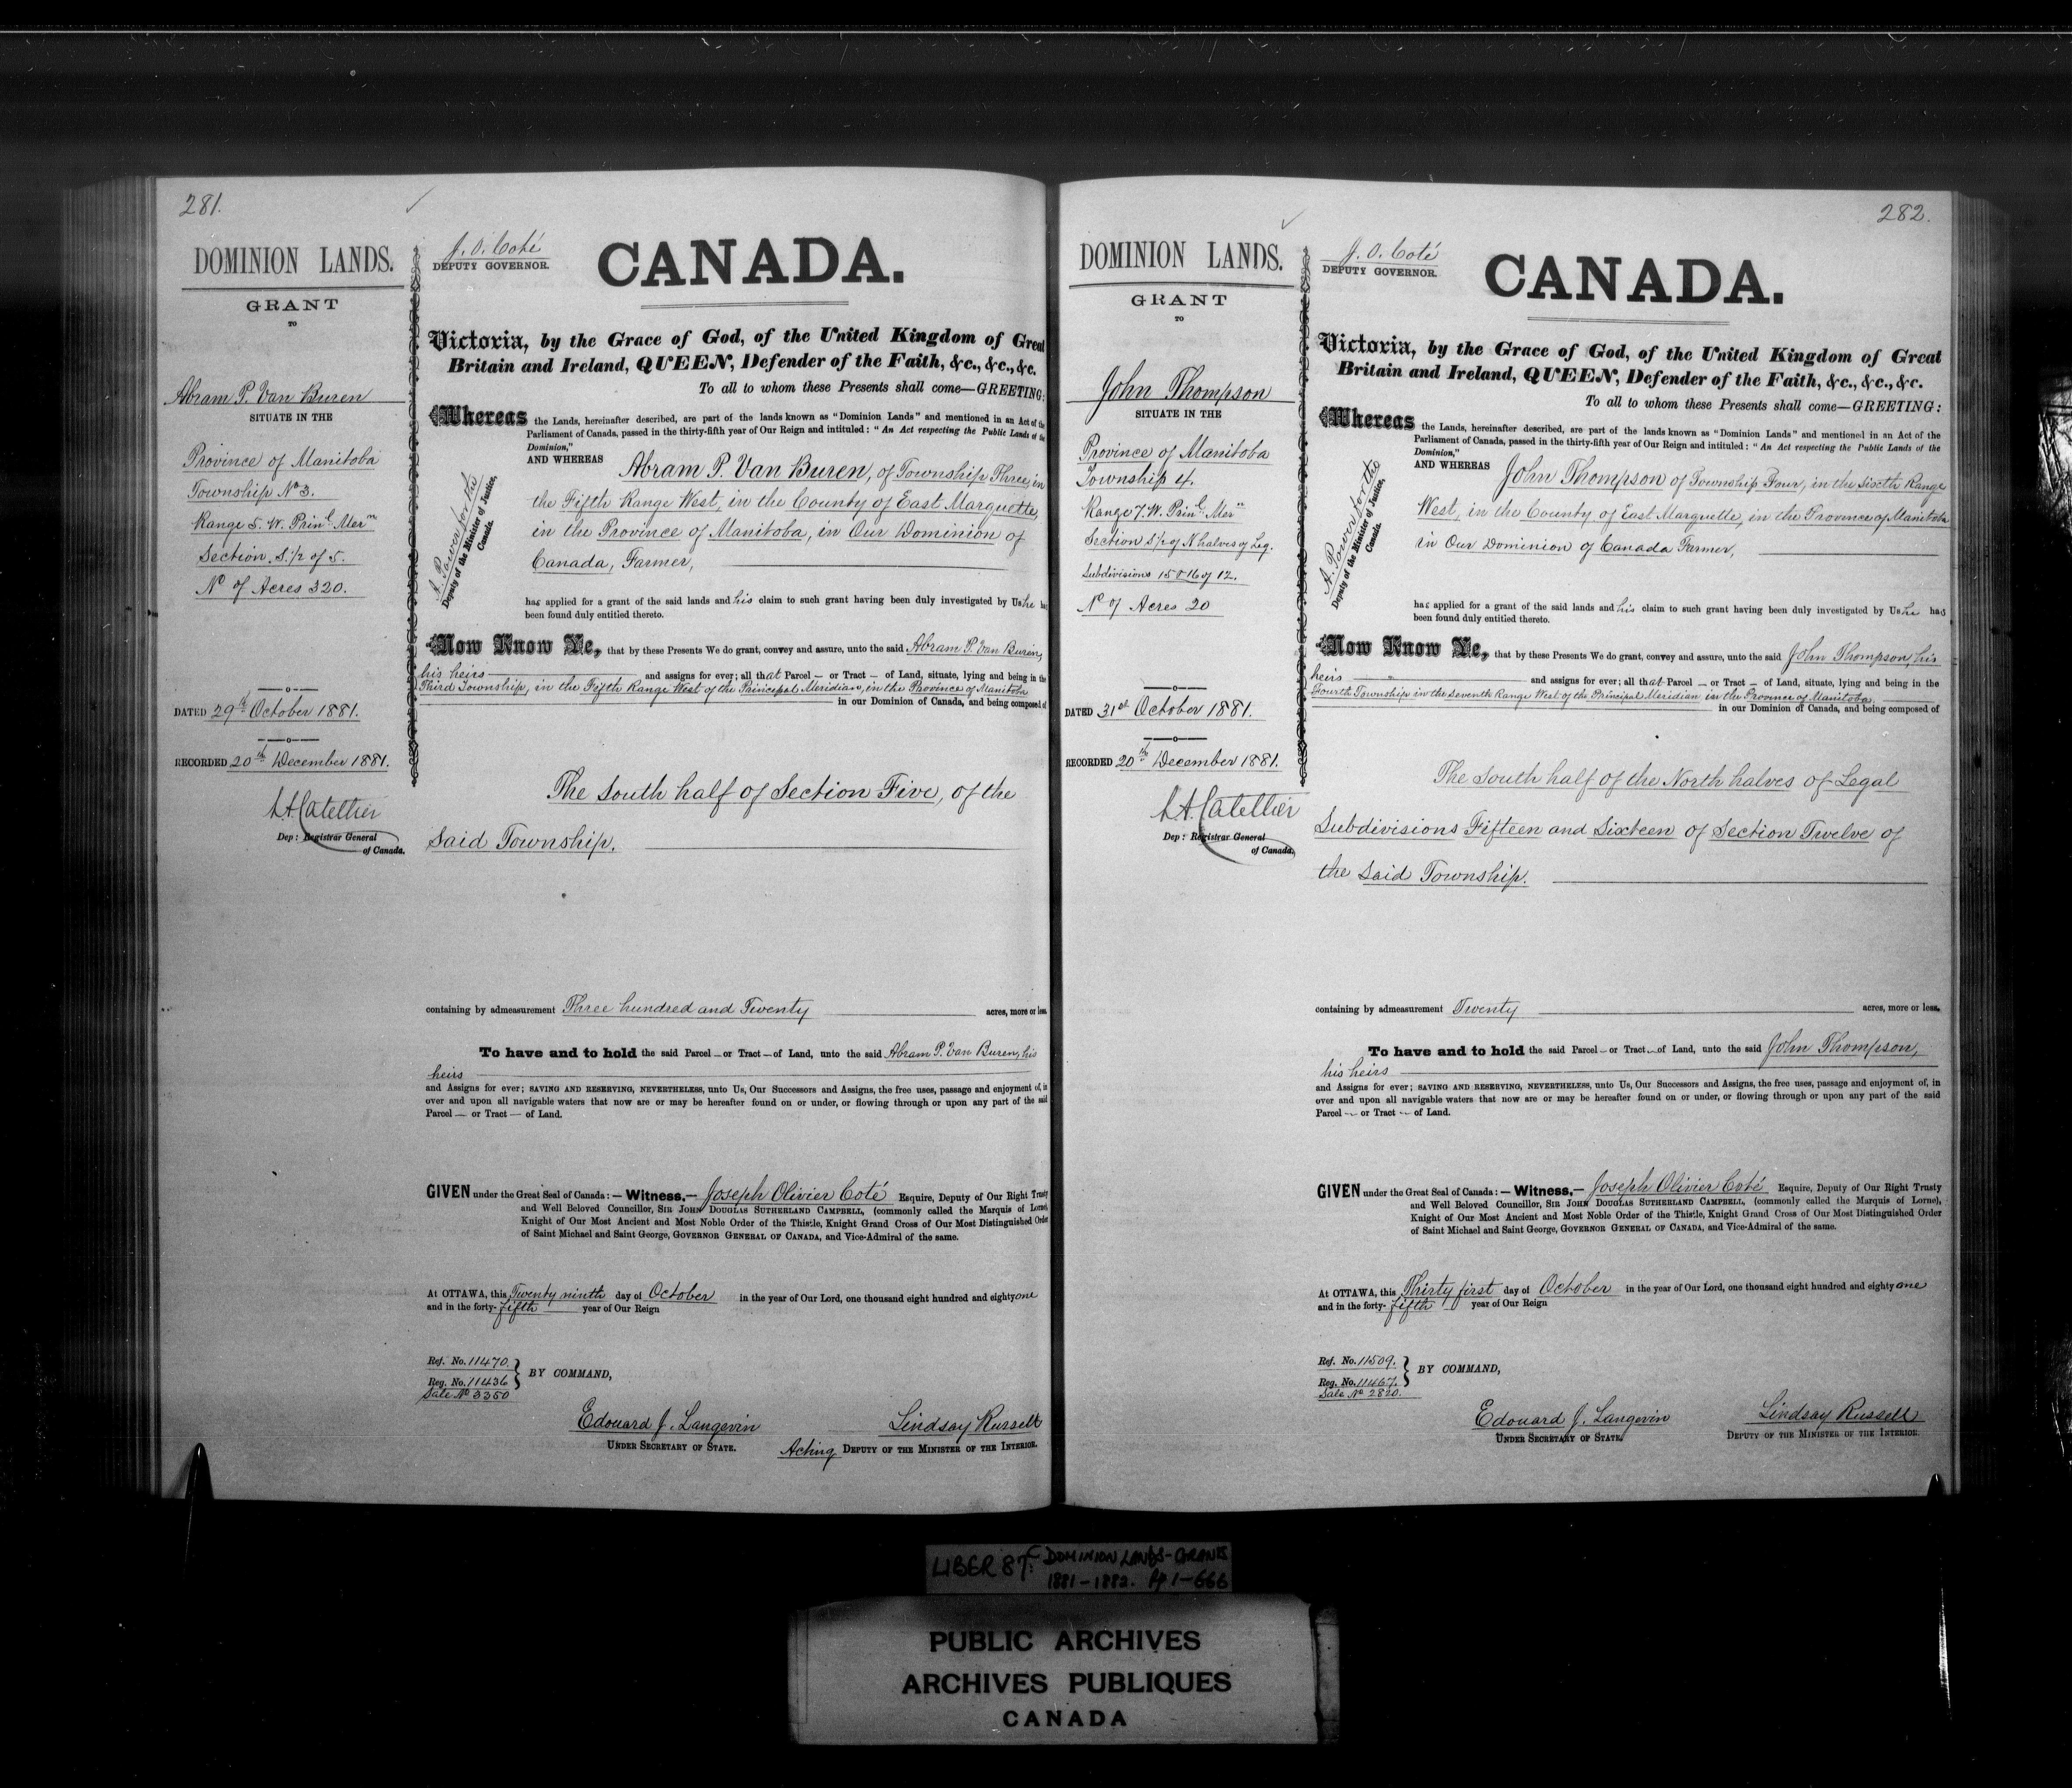 281.
DOMINION LANDS.
GRANT
TO
Abram P. Van Buren
SITUATE IN THE
Province of Manitoba
Township No 3.
Range 5. W. Prinl Mern
Section. S. 1/2 of 5.
No of Acres 320.
DATED 29th October 1881.
RECORDED 20th December 1881.
L.A. Catellier
Dep: Registrar General
of Canada.
J. O. Coté
DEPUTY GOVERNOR.
CANADA.
Victoria, by the Grace of God, of the United Kingdom of Great
Britain and Ireland, QUEEN, Defender of the Faith, &c., &c., &c.
To all to whom these Presents shall come—GREETING:
Whereas the Lands, hereinafter described, are part of the lands known as "Dominion Lands" and mentioned in an Act of the
Parliament of Canada, passed in the thirty-fifth year of Our Reign and intituled: "An Act respecting the Public Lands of the
Dominion,"
AND WHEREAS Abram P. Van Buren, of Township Three, in
the Fifth Range West, in the County of East Marquette,
in the Province of Manitoba, in Our Dominion of
Canada, Farmer,
A. Power for the
Deputy of the Minister of Justice,
Canada.
has applied for a grant of the said lands and his claim to such grant having been duly investigated by Us he has
been found duly entitled thereto.
Now Know Ye, that by these Presents We do grant, convey and assure, unto the said Abram P. Van Buren,
his heirs and assigns for ever; all that Parcel — or Tract — of Land, situate, lying and being in the
Third Township, in the Fifth Range West of the Principal Meridian, in the Province of Manitoba
in our Dominion of Canada, and being composed of
The South half of Section Five, of the
Said Township.
containing by admeasurement Three hundred and Twenty acres, more or less.
To have and to hold the said Parcel — or Tract — of Land, unto the said Abram P. Van Buren, his
heirs
and Assigns for ever; SAVING AND RESERVING, NEVERTHELESS, unto Us, Our Successors and Assigns, the free uses, passage and enjoyment of, in
over and upon all navigable waters that now are or may be hereafter found on or under, or flowing through or upon any part of the said
Parcel — or Tract — of Land.
GIVEN under the Great Seal of Canada: — Witness.— Joseph Olivier Coté Esquire, Deputy of Our Right Trusty
and Well Beloved Councillor, SIR JOHN DOUGLAS SUTHERLAND CAMPBELL, (commonly called the Marquis of Lorne),
Knight of Our Most Ancient and Most Noble Order of the Thistle, Knight Grand Cross of Our Most Distinguished Order
of Saint Michael and Saint George, GOVERNOR GENERAL OF CANADA, and Vice-Admiral of the same.
At OTTAWA, this Twenty ninth day of October in the year of Our Lord, one thousand eight hundred and eighty one
and in the forty-fifth year of Our Reign
Ref. No. 11470.
Reg. No. 11436
Sale No 3350
BY COMMAND,
Edouard J. Langevin
UNDER SECRETARY OF STATE.
Lindsay Russell
Acting DEPUTY OF THE MINISTER OF THE INTERIOR.
282.
DOMINION LANDS.
GRANT
TO
John Thompson
SITUATE IN THE
Province of Manitoba
Township 4.
Range 7. W. Prinl Mern
Section S 1/2 of N halves of Leg.
Subdivisions 15 & 16 of 12.
No of Acres 20
DATED 31st October 1881.
RECORDED 20th December 1881.
L.A. Catellier
Dep: Registrar General
of Canada.
J. O. Coté
DEPUTY GOVERNOR.
CANADA.
Victoria, by the Grace of God, of the United Kingdom of Great
Britain and Ireland, QUEEN, Defender of the Faith, &c., &c., &c.
To all to whom these Presents shall come—GREETING:
Whereas the Lands, hereinafter described, are part of the lands known as "Dominion Lands" and mentioned in an Act of the
Parliament of Canada, passed in the thirty-fifth year of Our Reign and intituled: "An Act respecting the Public Lands of the
Dominion,"
AND WHEREAS John Thompson of Township Four, in the Sixth Range
West, in the County of East Marquette, in the Province of Manitoba
in Our Dominion of Canada Farmer,
A. Power for the
Deputy of the Minister of Justice,
Canada.
has applied for a grant of the said lands and his claim to such grant having been duly investigated by Us he has
been found duly entitled thereto.
Now Know Ye, that by these Presents We do grant, convey and assure, unto the said John Thompson, his
heirs and assigns for ever; all that Parcel — or Tract — of Land, situate, lying and being in the
Fourth Township in the Seventh Range West of the Principal Meridian in the Province of Manitoba
in our Dominion of Canada, and being composed of
The South half of the North halves of Legal
Subdivisions Fifteen and Sixteen of Section Twelve of
the Said Township.
containing by admeasurement Twenty acres, more or less.
To have and to hold the said Parcel — or Tract — of Land, unto the said John Thompson,
his heirs
and Assigns for ever; SAVING AND RESERVING, NEVERTHELESS, unto Us, Our Successors and Assigns, the free uses, passage and enjoyment of, in
over and upon all navigable waters that now are or may be hereafter found on or under, or flowing through or upon any part of the said
Parcel — or Tract — of Land.
GIVEN under the Great Seal of Canada: — Witness.— Joseph Olivier Coté Esquire, Deputy of Our Right Trusty
and Well Beloved Councillor, SIR JOHN DOUGLAS SUTHERLAND CAMPBELL, (commonly called the Marquis of Lorne),
Knight of Our Most Ancient and Most Noble Order of the Thistle, Knight Grand Cross of Our Most Distinguished Order
of Saint Michael and Saint George, GOVERNOR GENERAL OF CANADA, and Vice-Admiral of the same.
At OTTAWA, this Thirty first day of October in the year of Our Lord, one thousand eight hundred and eighty one
and in the forty-fifth year of Our Reign
Ref. No. 11509.
Reg. No. 11467.
Sale No 2820.
BY COMMAND,
Edouard J. Langevin
UNDER SECRETARY OF STATE.
Lindsay Russell
DEPUTY OF THE MINISTER OF THE INTERIOR.
LIBER 87C: DOMINION LANDS-GRANTS
1881-1882. pp 1-666
PUBLIC ARCHIVES
ARCHIVES PUBLIQUES
CANADA